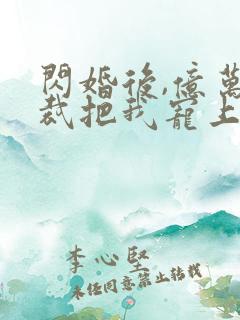 閃婚後,億萬
裁把我寵上
李心堅
未經同意禁止轉載